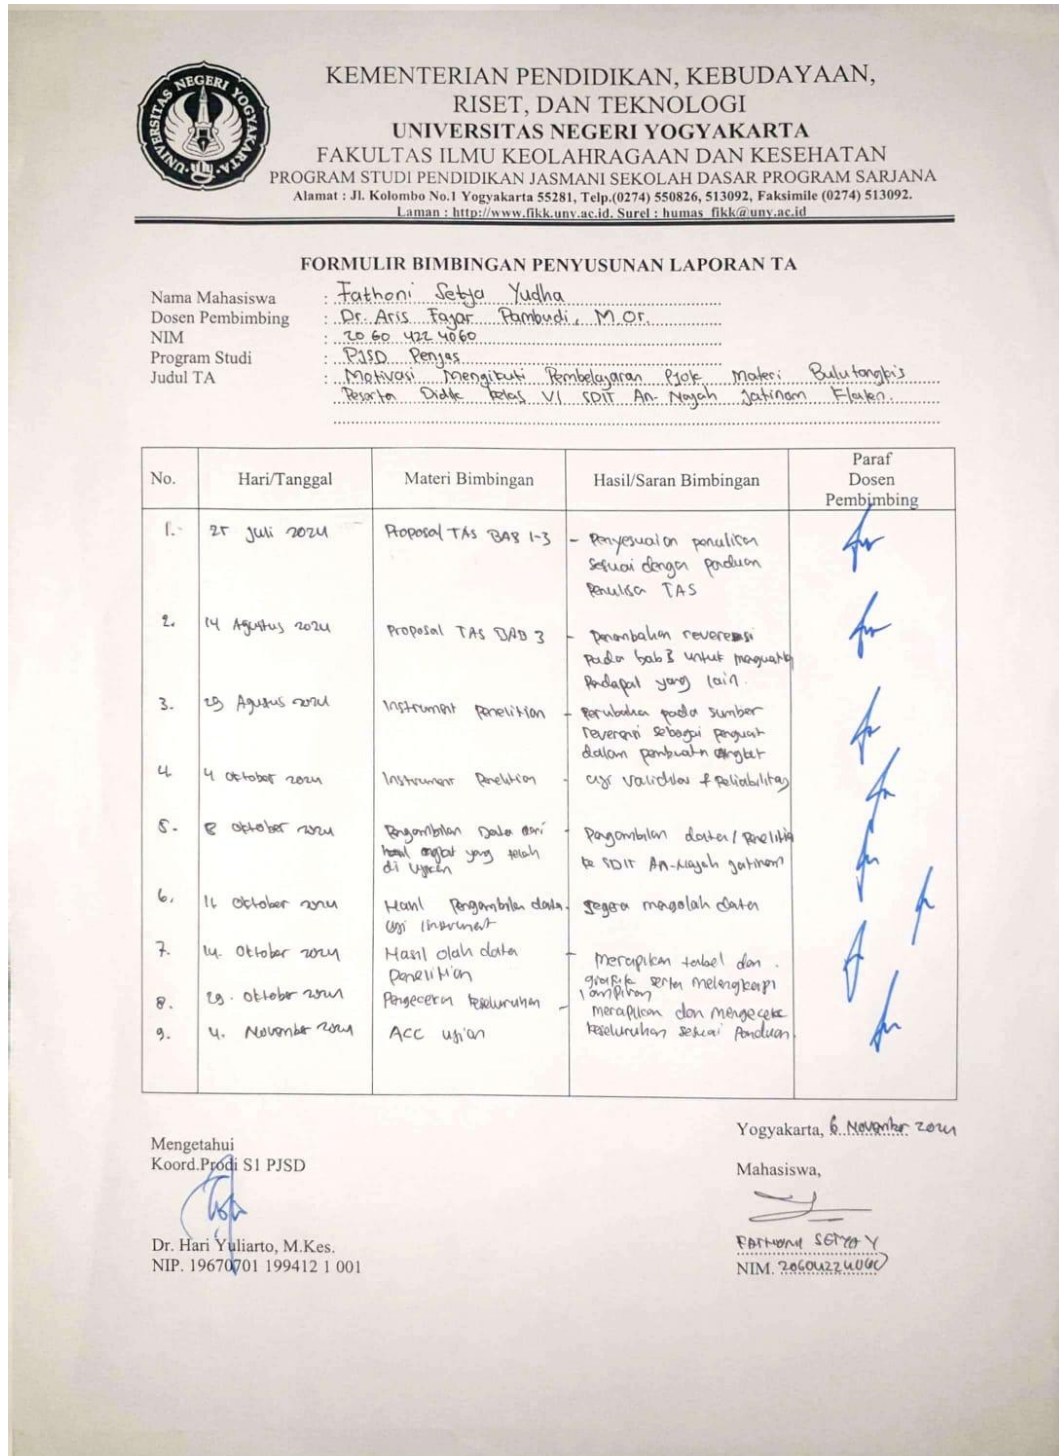 UNIVERSITAS NEGERI YOGYAKARTA
KEMENTERIAN PENDIDIKAN, KEBUDAYAAN,
RISET, DAN TEKNOLOGI
UNIVERSITAS NEGERI YOGYAKARTA
FAKULTAS ILMU KEOLAHRAGAAN DAN KESEHATAN
PROGRAM STUDI PENDIDIKAN JASMANI SEKOLAH DASAR PROGRAM SARJANA
Alamat : Jl. Kolombo No.1 Yogyakarta 55281, Telp.(0274) 550826, 513092, Faksimile (0274) 513092.
Laman : http://www.fikk.uny.ac.id. Surel : humas_fikk@uny.ac.id
FORMULIR BIMBINGAN PENYUSUNAN LAPORAN TA
Nama Mahasiswa : Fathoni Setya Yudha
Dosen Pembimbing : Dr. Aris Fajar Pambudi, M.Or.
NIM : 20 60 422 4060
Program Studi : PJSD Penjas
Judul TA : Motivasi Mengikuti Pembelajaran Pjok Materi Bulutangkis
Peserta Didik kelas VI SDIT An-Najah Jatinom Klaten.
No. Hari/Tanggal Materi Bimbingan Hasil/Saran Bimbingan Paraf
Dosen
Pembimbing
1. 25 Juli 2024 Proposal TAS BAB 1-3 - Penyesuaian penulisan
sesuai dengan panduan
Penulisa TAS
2. 14 Agustus 2024 Proposal TAS BAB 3 - Penambahan reverensi
pada bab 3 untuk
Pendapat yang lain.
3. 29 Agustus 2024 Instrument penelitian - perubahan pada sumber
reverensi sebagai penguat
dalam pembuatn angket
4 4 Oktober 2024 Instrument Penelitian - uji validitas & Reliabilitas
5. 8 Oktober 2024 Pengambilan Data dari - Pengambilan data/
hasil angket yang telah ke SDIT An-Najah Jatinom
di ujikan
6. Oktober 2024 Hasil Pengambilan data. segera mengolah data
uji
7. 14. Oktober 2024 Hasil olah data - merapikan tabel dan
penelitian grafik serta melengkapi
lampiran
8. 29. Oktober 2024 Pengecekan keseluruhan - merapikan dan mengecek
9. 4. November 2024 ACC ujian keseluruhan sesuai Panduan
Yogyakarta, 6 November 2024
Mengetahui
Koord.Prodi S1 PJSD
Mahasiswa,
Dr. Hari Yuliarto, M.Kes.
NIP. 19670701 199412 1 001
FATHONI SETYA Y
NIM. 20604224060